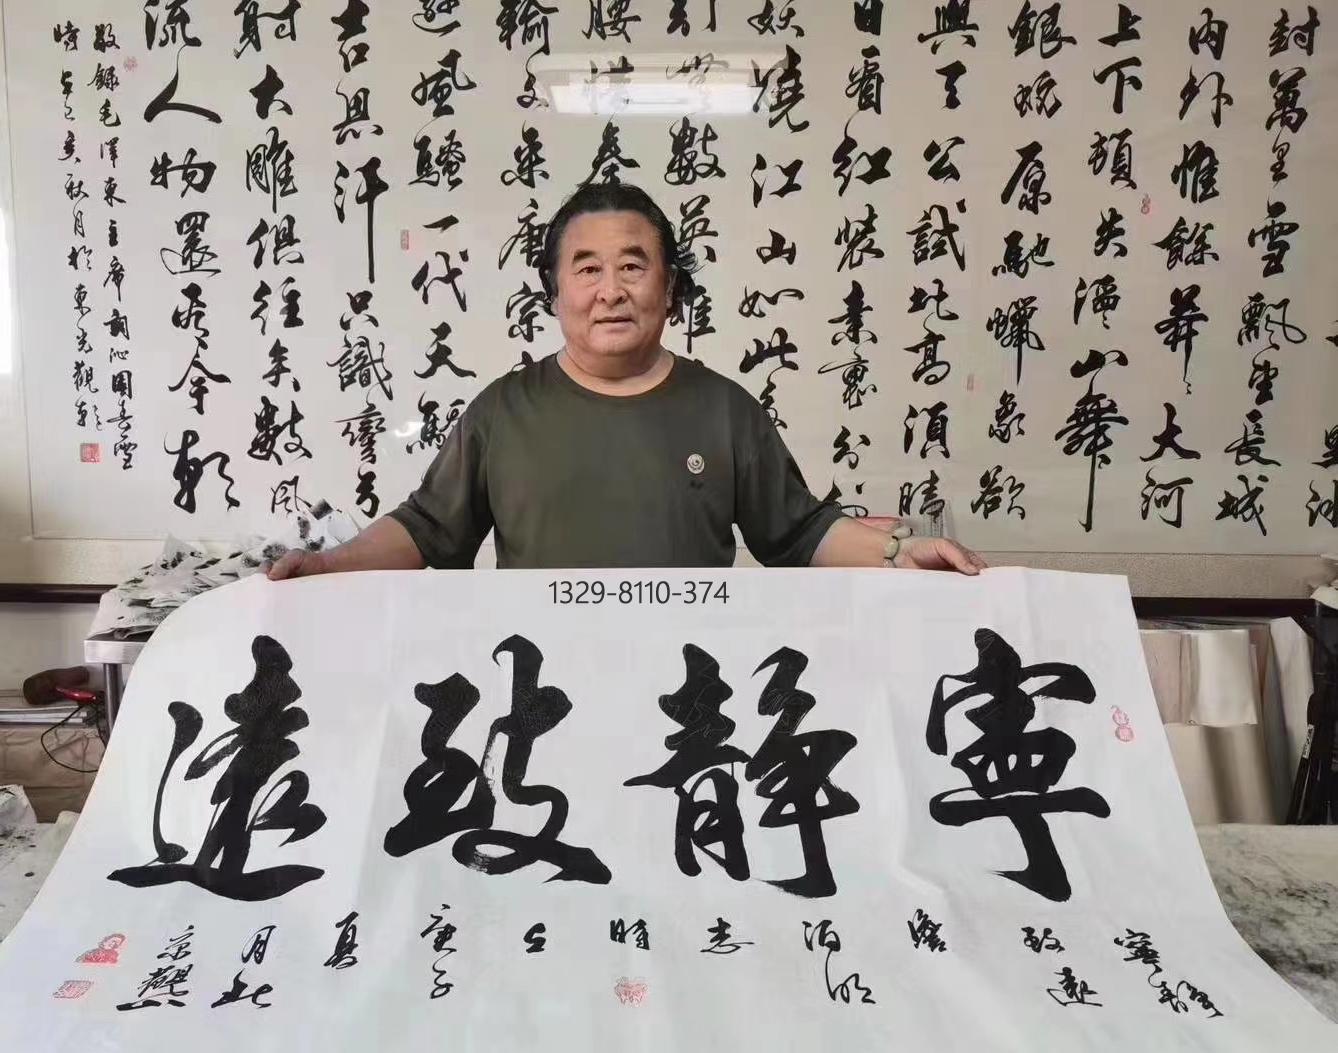 封萬里雪飄望長城
内外惟餘莽々大河
上下頓失滔々山舞
銀蛇原馳蠟象欲
與天公試比高須晴
日看紅裝素裹分外
妖嬈江山如此多
引無數英雄
腰惜秦
輸文采唐宗
遜風騷一代天驕
吉思汗只識彎弓
射大雕俱往矣數風
流人物還看今朝
敬錄毛澤東主席詞沁園春雪
己亥秋月於
1329-8110-374
寧靜致遠
寧靜致遠澹泊明志時庚子夏月北京